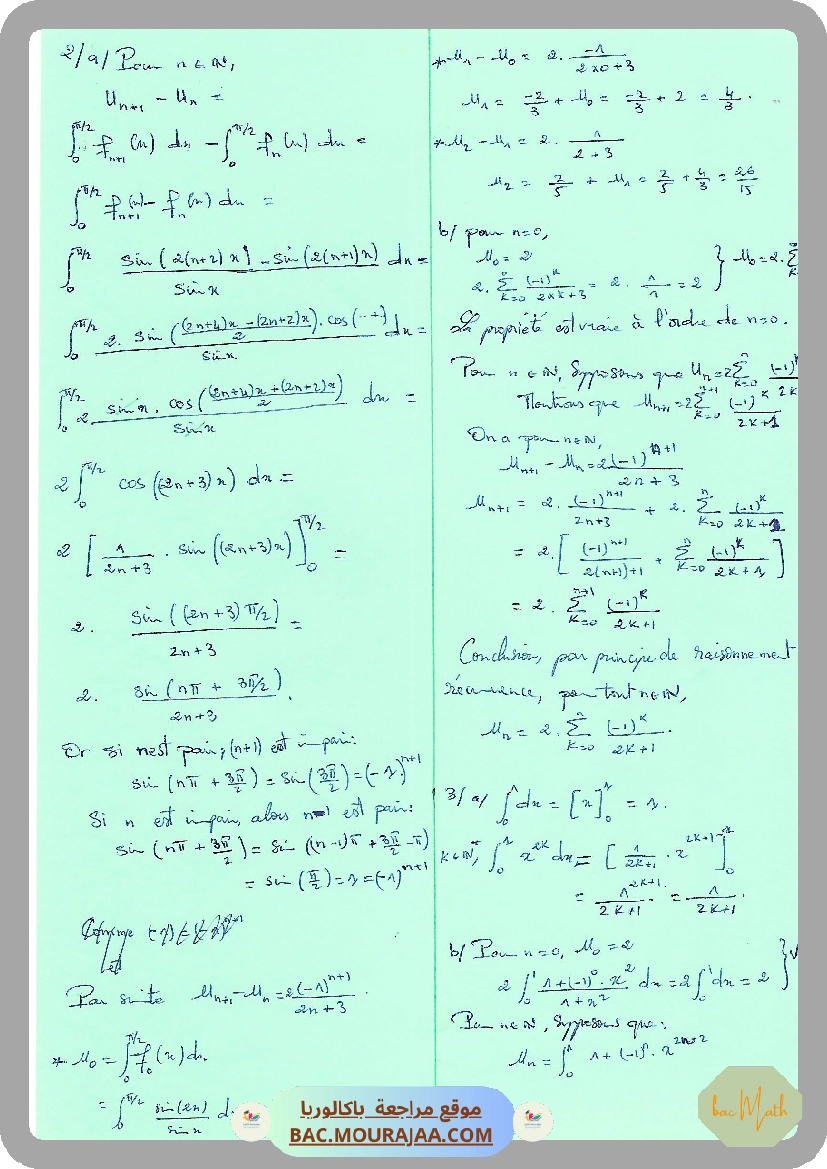 2/a/ Pour n ∈ ℕ,
U_{n+1} - U_n =
∫_0^{π/2} f_{n+1}(x) dx - ∫_0^{π/2} f_n(x) dx =
∫_0^{π/2} f_{n+1}(x) - f_n(x) dx =
∫_0^{π/2} \frac{sin(2(n+2)x) - sin(2(n+1)x)}{sin x} dx =
∫_0^{π/2} \frac{2. sin(\frac{(2n+4)x - (2n+2)x}{2}). cos(···)}{sin x} dx =
∫_0^{π/2} 2 \frac{sin x . cos(\frac{(2n+4)x + (2n+2)x}{2})}{sin x} dx =
2 ∫_0^{π/2} cos((2n+3)x) dx =
2 [\frac{1}{2n+3} . sin((2n+3)x)]_0^{π/2} =
2. \frac{sin((2n+3)π/2)}{2n+3} =
2. \frac{sin(nπ + 3π/2)}{2n+3}.
Or si n est pair, (n+1) est impair:
sin(nπ + \frac{3π}{2}) = sin(\frac{3π}{2}) = (-1)^{n+1}
Si n est impair, alors n-1 est pair:
sin(nπ + \frac{3π}{2}) = sin((n-1)π + \frac{3π}{2} - π)
= sin(\frac{π}{2}) = 1 = (-1)^{n+1}
Par suite U_{n+1} - U_n = \frac{2(-1)^{n+1}}{2n+3}.
* U_0 = ∫_0^{π/2} f_0(x) dx
= ∫_0^{π/2} \frac{sin(2x)}{sin x} d
* U_1 - U_0 = 2. \frac{-1}{2×0+3}
U_1 = \frac{-2}{3} + U_0 = \frac{-2}{3} + 2 = \frac{4}{3}.
* U_2 - U_1 = 2. \frac{1}{2+3}
U_2 = \frac{2}{5} + U_1 = \frac{2}{5} + \frac{4}{3} = \frac{26}{15}
b/ pour n=0,
U_0 = 2
2. Σ_{k=0}^{0} \frac{(-1)^k}{2×k+3} = 2. \frac{1}{1} = 2 } U_0 = 2. Σ
La propriété est vraie à l'ordre de n=0.
Pour n ∈ ℕ, Supposons que U_n = 2 Σ_{k=0}^{n} \frac{(-1)^k}{2k
Montrons que U_{n+1} = 2 Σ_{k=0}^{n+1} \frac{(-1)^k}{2k+1}
On a pour n∈ℕ,
U_{n+1} - U_n = \frac{2(-1)^{n+1}}{2n+3}
U_{n+1} = 2. \frac{(-1)^{n+1}}{2n+3} + 2. Σ_{k=0}^{n} \frac{(-1)^k}{2k+1}
= 2. [\frac{(-1)^{n+1}}{2(n+1)+1} + Σ_{k=0}^{n} \frac{(-1)^k}{2k+1}]
= 2. Σ_{k=0}^{n+1} \frac{(-1)^k}{2k+1}
Conclusion, par principe de raisonnement
récurrence, pour tout n∈ℕ,
U_n = 2. Σ_{k=0}^{n} \frac{(-1)^k}{2k+1}.
3/ a/ ∫_0^1 dx = [x]_0^1 = 1.
k∈ℕ*, ∫_0^1 x^{2k} dx = [\frac{1}{2k+1} . x^{2k+1}]_0^1
= \frac{1^{2k+1}}{2k+1} = \frac{1}{2k+1}.
b/ Pour n=0, U_0 = 2
2 ∫_0^1 \frac{1+(-1)^0 . x^2}{1+x^2} dx = 2 ∫_0^1 dx = 2 }
Pour n∈ℕ, Supposons que:
U_n = ∫_0^1 1 + (-1)^n . x^{2n+2}
موقع مراجعة باكالوريا
BAC.MOURAJAA.COM
bacMath